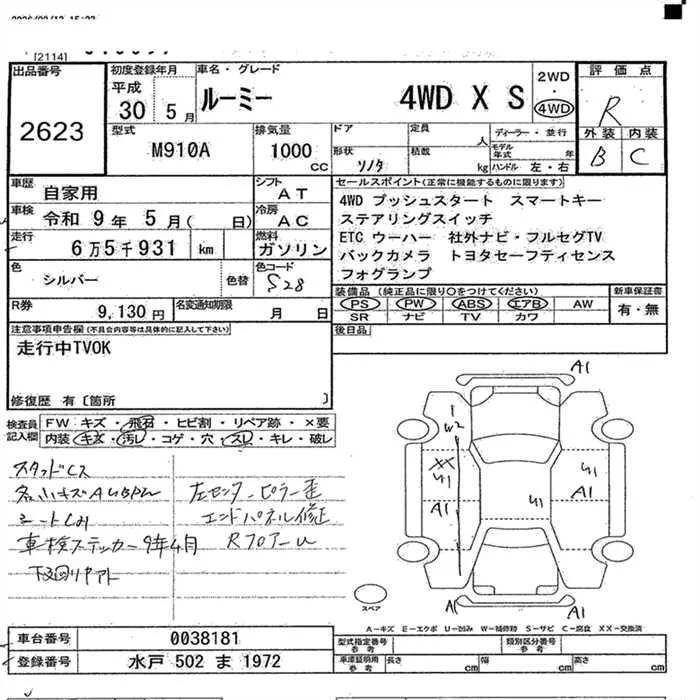 [2114]
出品番号 初度登録年月 車名・グレード 2WD 評価点
平成 ルーミー 4WD X S ・ R
2623 30 5月 4WD 外装 内装
型式 排気量 ドア 定員 人 ディーラー・並行 B C
M910A 1000 CC 形状 積載 モデル年式 年
ソノタ kg ハンドル 左・右
車歴 自家用 シフト AT セールスポイント(正常に機能するものに限ります)
車検 令和 9年 5月( 日) 冷房 AC 4WD プッシュスタート スマートキー
ステアリングスイッチ
走行 6万5千931 km 燃料 ガソリン ETC ウーハー 社外ナビ・フルセグTV
バックカメラ トヨタセーフティセンス
色 シルバー 色替 色コード S28 フォグランプ
装備品(純正品に限り〇をつけてください) 新車保証書
R券 9,130円 名変通知期限 月 日 PS PW ABS エアB AW 有・無
SR ナビ TV カワ
注意事項申告欄(不具合内容等は具体的に記入して下さい) 後日品
走行中TVOK
修復歴 有〔箇所 〕
検査員記入欄 FW キズ・飛石・ヒビ割・リペア跡・×要
内装・キズ・汚レ・コゲ・穴・スレ・キレ・破レ
スタッドレス
シートしみ
車検ステッカー9年4月
下回リサアト
左センターピラー歪
エンドパネル修正
RフロアーU
A1
W2
XX
U1
A1
U1
U1
A1
A1
スペア
A1
A-キズ E-エクボ U-凹み W-補修跡 S-サビ C-腐食 XX-交換済
車台番号 0038181 型式指定番号 参考 類別区分番号 参考
登録番号 水戸 502 ま 1972 車庫証明用 参考 長さ cm 幅 cm 高さ cm